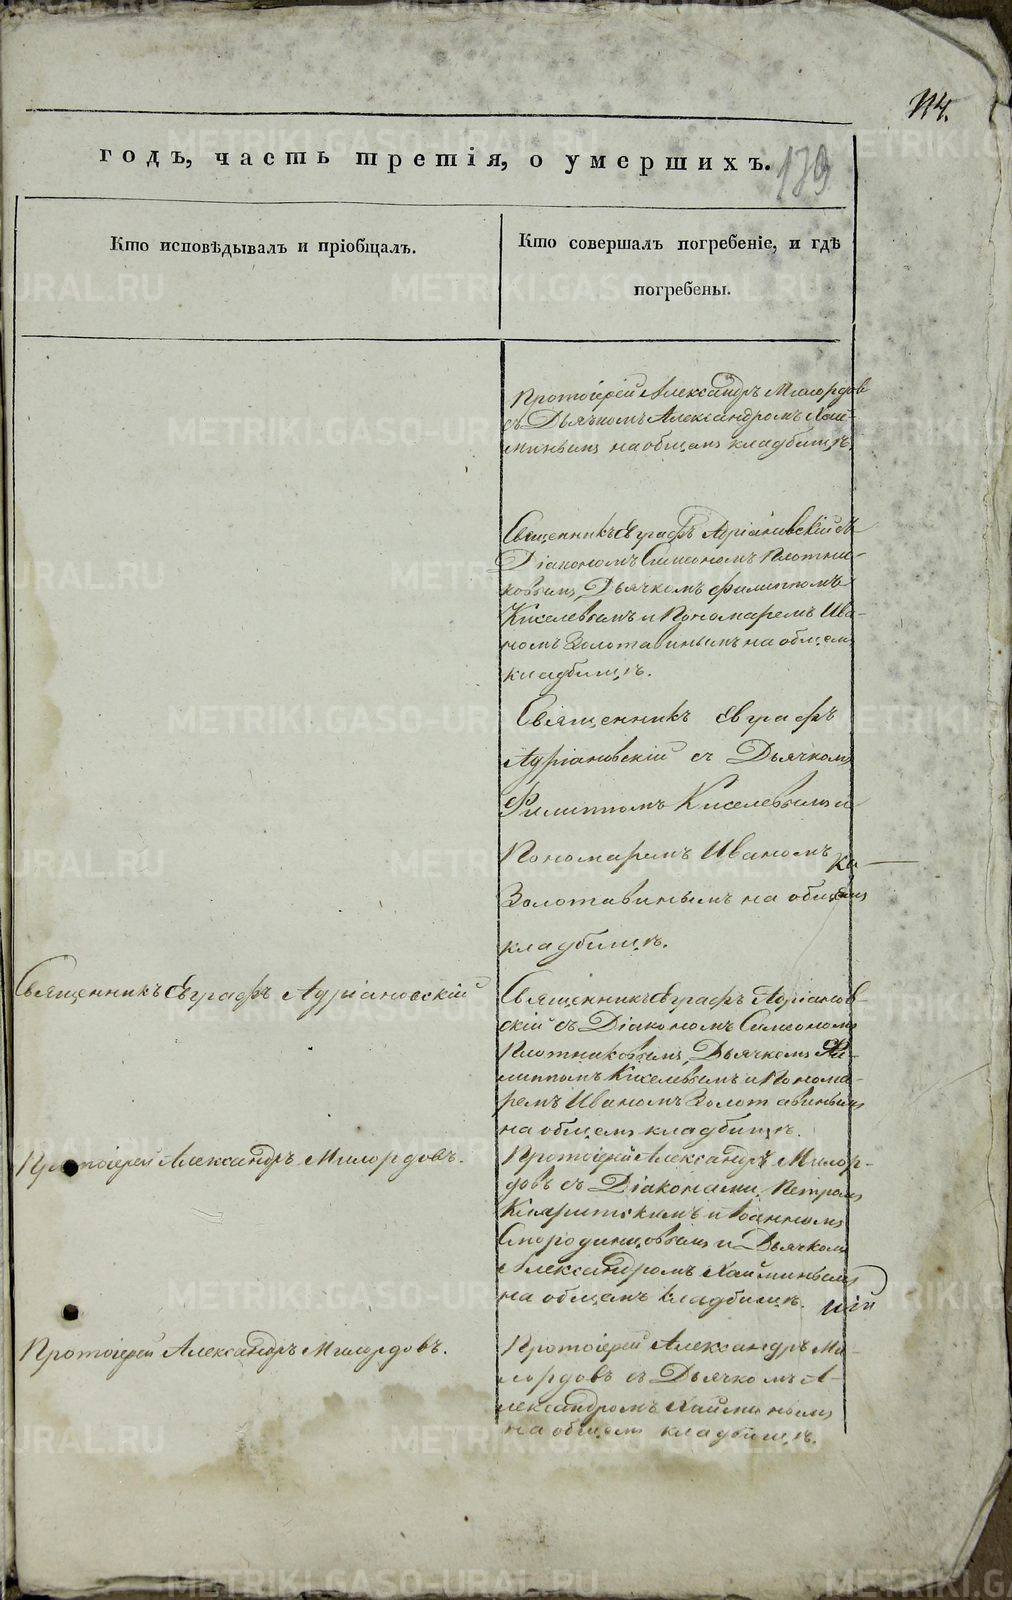 114.
годъ, часть третія, о умершихъ.
139
Кто исповѣдывалъ и пріобщалъ.
Кто совершалъ погребеніе, и гдѣ
погребены.
Протоіерей Александръ Милордов
съ Дьячкомъ Александромъ Хай-
миным на общемъ кладбищѣ.
Священникъ Евграфъ Адріановскій съ
Діакономъ Симеономъ Плотни-
ковымъ, Дьячкомъ Филиппомъ
Киселевымъ и Пономаремъ Ива-
номъ Золотавинымъ на общемъ
кладбищѣ.
Священникъ Евграфъ
Адріановскій съ Дьячкомъ
Филиппомъ Киселевымъ и
Пономаремъ Иваномъ
Золотавинымъ на общемъ
кладбищѣ.
Священникъ Евграфъ Адріановскій
Священникъ Евграфъ Адріанов-
скій съ Діакономъ Симеономъ
Плотниковымъ, Дьячкомъ Фи-
липпомъ Киселевымъ и Понома-
ремъ Иваномъ Золотавинымъ
на общемъ кладбищѣ.
Протоіерей Александръ Милордовъ.
Протоіерей Александръ Милор-
довъ съ Діаконами, Петромъ
и Іоанномъ
Смородинцовымъ и Дьячкомъ
Александромъ Хайминымъ
на общемъ кладбищѣ.
Протоіерей Александръ Милордовъ.
Протоіерей Александръ Ми-
лордовъ съ Дьячкомъ А-
лександромъ Хайминымъ
на общемъ кладбищѣ.
METRIKI.GASO-URAL.RU